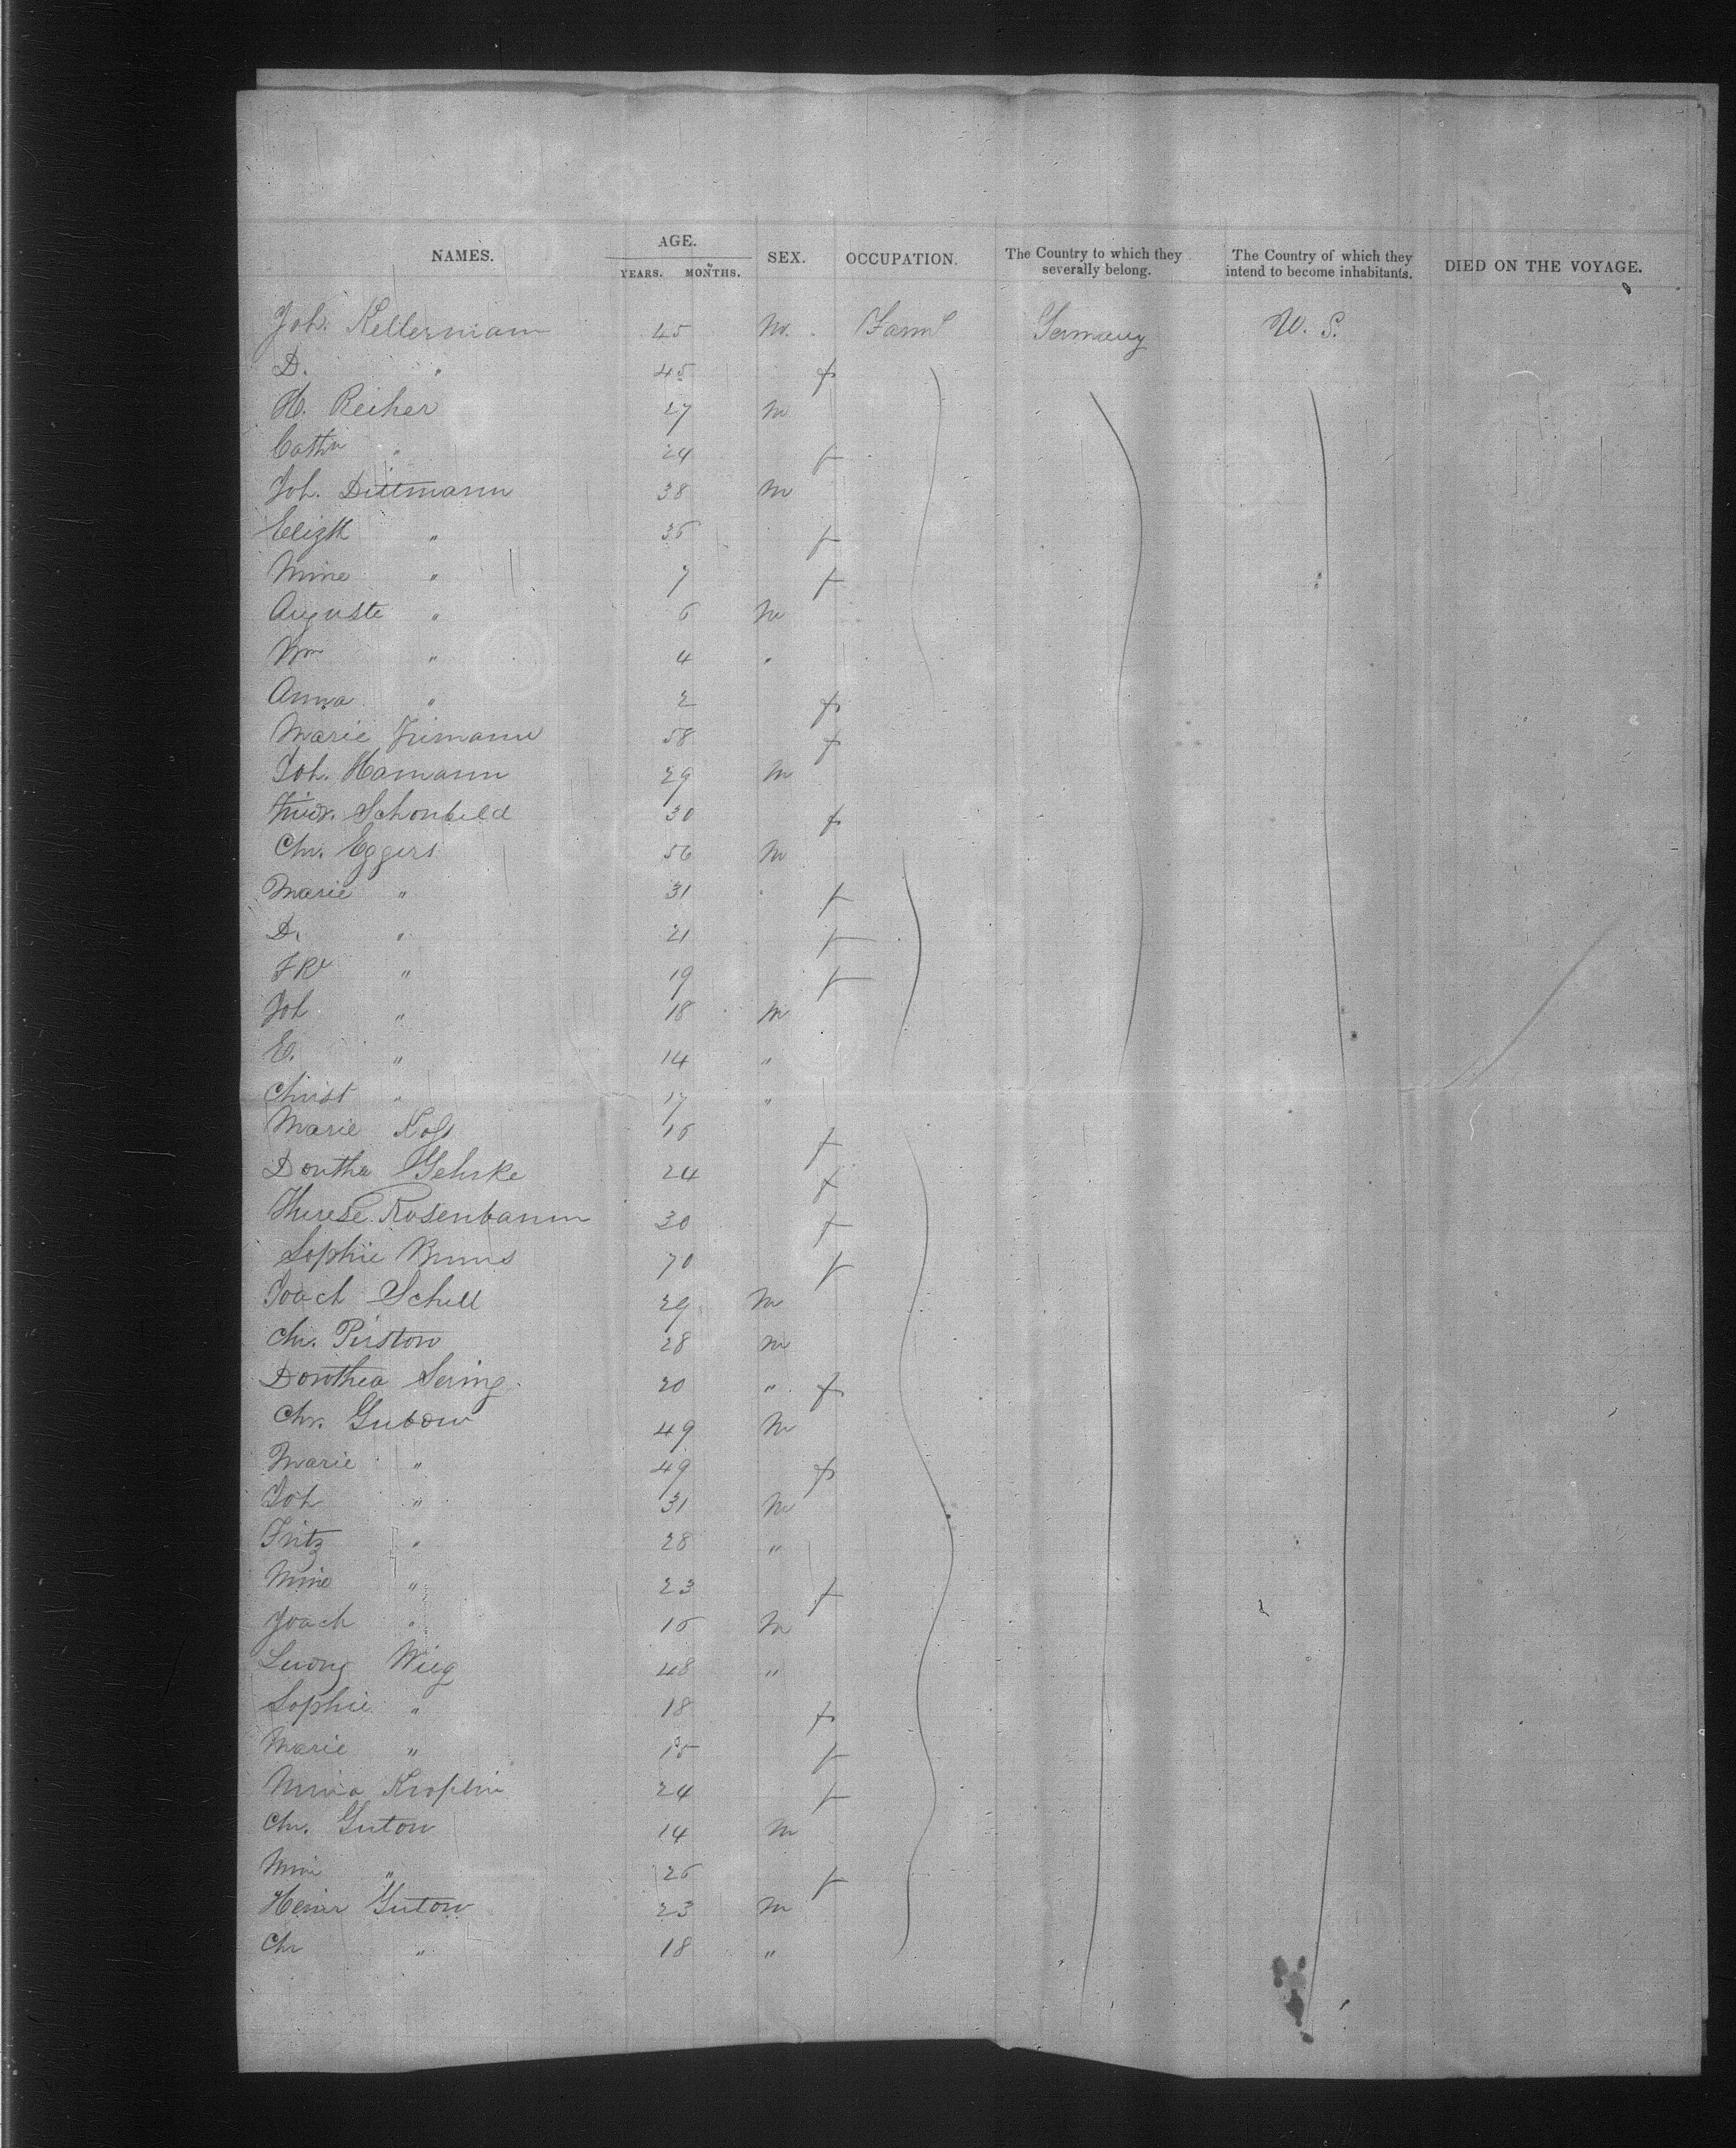 NAMES. AGE. YEARS. MONTHS. SEX. OCCUPATION. The Country to which they severally belong. The Country of which they intend to become inhabitants. DIED ON THE VOYAGE.
Joh. Kellermann 45 M. Farm Germany U. S.
D. " 45 f
H. Reiher 27 m
Cathr " 24 f
Joh. Dittmann 38 m
Elizth " 36 f
Mine " 7 f
Auguste " 6 m
Wm " 4 "
Anna " 2 f
Marie 58 f
Joh. Hamann 29 m
Friedr. Schonfeld 30 f
Chr. Eggers 56 m
Marie " 31 f
D. " 21 f
" 19 f
Joh " 18 m
E. " 14 "
Christ " 17 "
Marie 16 f
Dorthe Gehrke 24 f
Therese Rosenbaum 30 f
Sophie Bruns 70 f
Joach Schell 29 m
Chr. Pirstow 28 m
Dorothea Sering 20 " f
Chr. Gubow 49 m
Marie " 49 f
Joh " 31 m
Fritz " 28 "
Mine " 23 f
Joach " 16 m
Wieg 48 "
Sophie " 18 f
Marie " 15 f
Mina Kroplin 24 f
Chr. Gutow 14 m
" 26 f
Heinr Gutow 23 m
Chr " 18 "